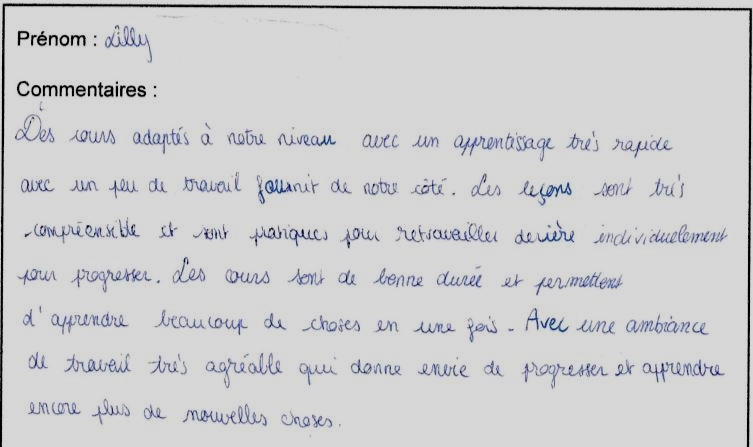 Prénom : Lilly
Commentaires :
Des cours adaptés à notre niveau avec un apprentissage très rapide
avec un peu de travail fournit de notre côté. Les leçons sont très
compréensible et sont pratiques pour retravailler derière individuelement
pour progresser. Les cours sont de bonne durée et permettent
d'apprendre beaucoup de choses en une fois. Avec une ambiance
de travail très agréable qui donne envie de progresser et apprendre
encore plus de nouvelles choses.